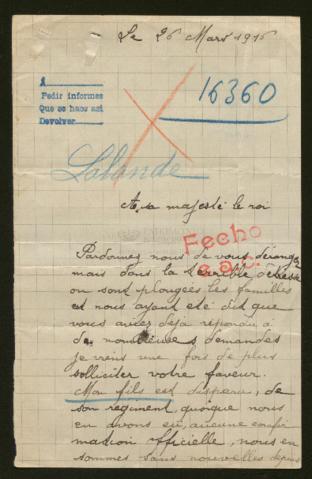 Le 26 Mars 1916
A
Pedir informes
Que se haos asi
Devolver
16360
Lalande
A sa majesté le roi
Fecho
Pardonnez nous de vous déranger
mais dans la terrible détresse
ou sont plongées les familles
et nous ayant eté dit que
vous aviez déjà repondu à
de nombreuses demandes
je viens une fois de plus
solliciter votre faveur.
Mon fils est disparu, de
son regiment, quoique nous
en avons eu, aucune confir
mation officielle, nous en
sommes sans nouvelles depuis